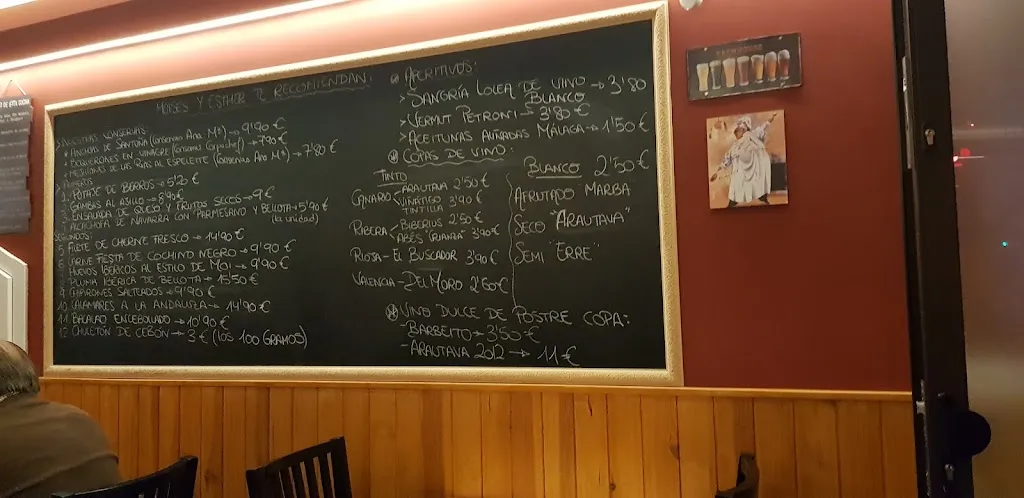 MOISES Y ESTHER TE RECOMIENDAN:
NUESTRAS CONSERVAS:
ANCHOAS DE SANTOÑA (Conservas Ana Mª) → 9'90 €
BOQUERONES EN VINAGRE (Conservas) → 7'90 €
MEJILLONES DE LAS RIAS AL ESPELETTE (Conservas Ana Mª) → 7'80
PRIMEROS
1. POTAJE DE BERROS → 5'20 €
2. GAMBAS AL AJILLO → 8'90 €
3. ENSALADA DE QUESO Y FRUTOS SECOS → 9 €
4. ALCACHOFA DE NAVARRA CON PARMESANO Y BELLOTA → 5'90 €
(la unidad)
SEGUNDOS:
5. FILETE DE CHERNE FRESCO → 14'90 €
6. CARNE FIESTA DE COCHINO NEGRO → 9'90 €
7. HUEVOS IBERICOS AL ESTILO DE MOI → 9'90 €
8. PLUMA IBERICA DE BELLOTA → 15'50 €
9. CHIPIRONES SALTEADOS → 9'90 €
10. CALAMARES A LA ANDALUZA → 14'90 €
11. BACALAO ENCEBOLLADO → 10'90 €
12. CHULETÓN DE CEBÓN → 3 € (LOS 100 GRAMOS)
APERITIVOS:
> SANGRÍA LOLEA DE VINO BLANCO → 3'80
> VERMUT PETRONI → 3'80 €
> ACEITUNAS ALIÑADAS MÁLAGA → 1'50 €
COPAS DE VINO:
TINTO
CANARO < ARAUTAVA 2'50 €
VIÑATIGO TINTILLA 3'90 €
RIBERA < BIBERIUS 2'50 €
ABÉS "CRIANZA" 3'90 €
RIOJA - EL BUSCADOR 3'90 €
VALENCIA - DEL MORO 2'60 €
BLANCO 2'50 €
AFRUTADO MARBA
SECO "ARAUTAVA"
SEMI "ERRE"
VINO DULCE DE POSTRE COPA:
- BARBEITO → 3'50 €
- ARAUTAVA 2012 → 11 €